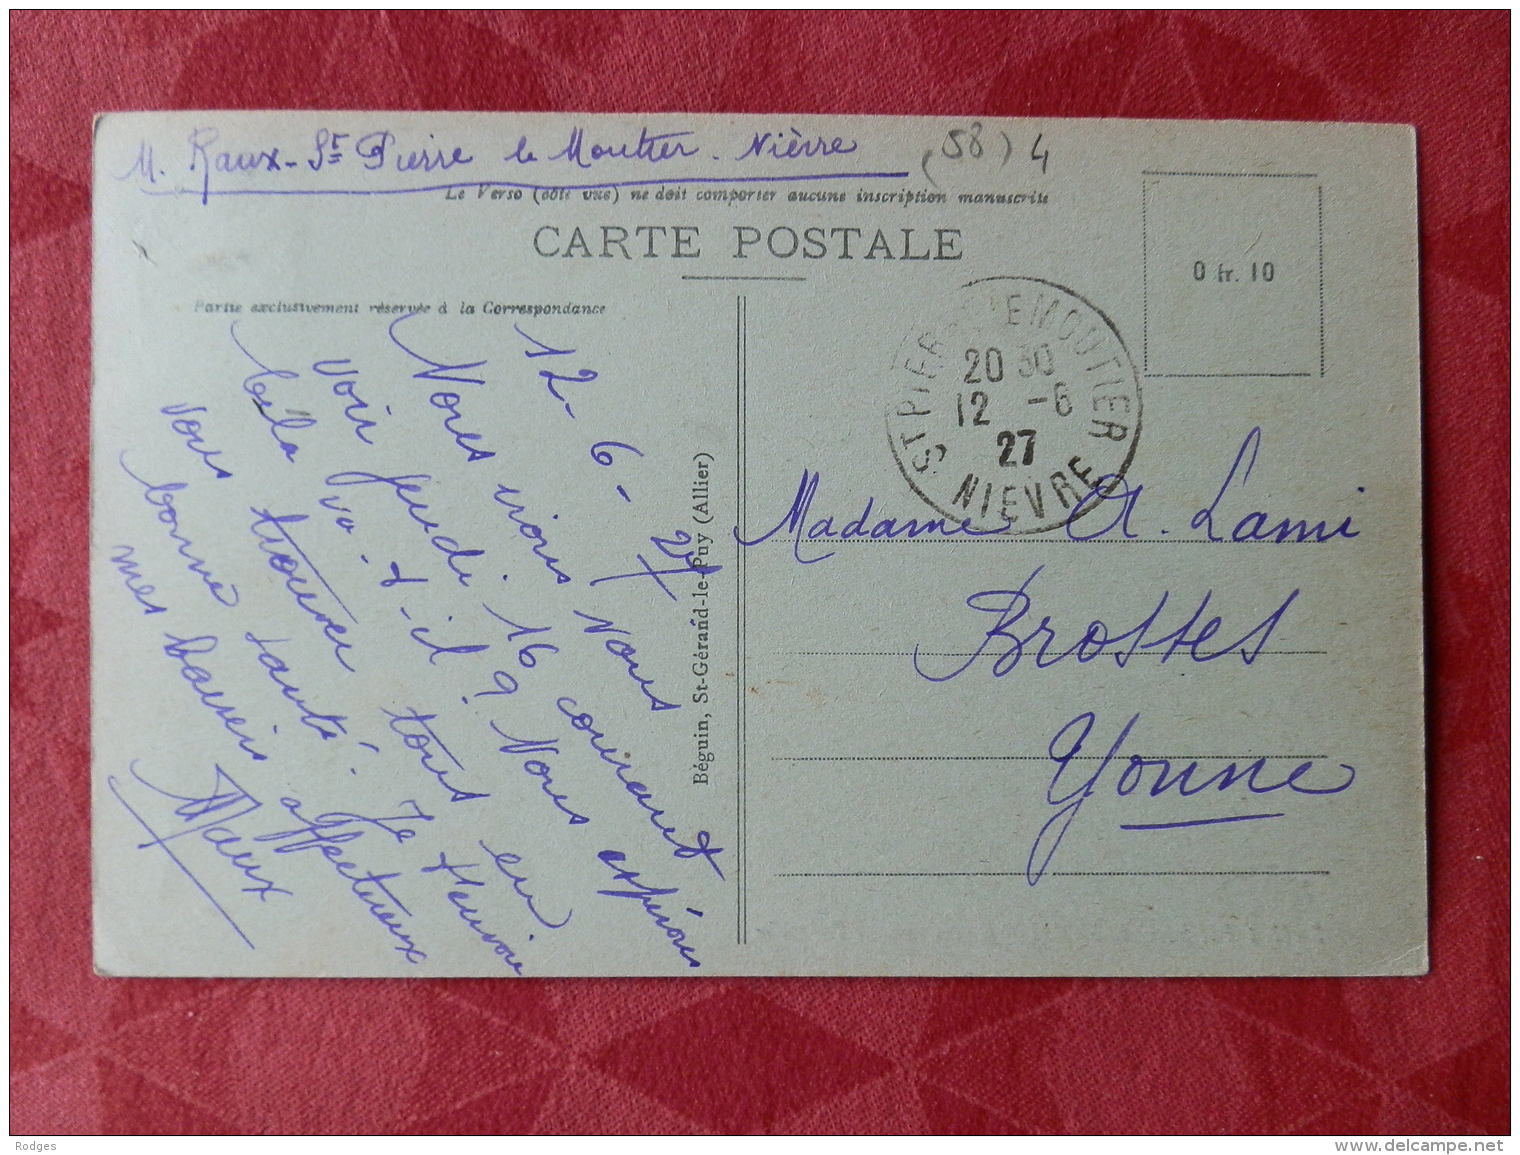 M. Raux - St Pierre le Moutier. Nièvre
(58) 4
Le Verso (côté vue) ne doit comporter aucune inscription manuscrite
CARTE POSTALE
0 fr. 10
Partie exclusivement réservée à la Correspondance
ST PIERRE LE MOUTIER
20 30
12 -6
27
NIEVRE
12 - 6 - 27
Nous irons vous
voir jeudi 16 courant
Cela va-t-il ? Nous espérons
vous trouver tous en
bonne santé. Je t'envoie
mes baisers affectueux
Raux
Béguin, St-Gérand-le-Puy (Allier)
Madame A. Lami
Brosses
Yonne
Rodges
www.delcampe.net